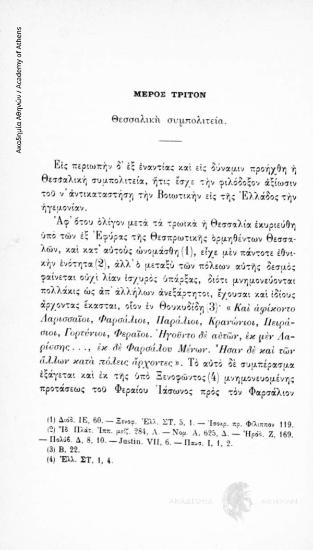 Ακαδημία Αθηνών / Academy of Athens
ΜΕΡΟΣ ΤΡΙΤΟΝ
Θεσσαλικὴ συμπολιτεία.
Εἰς περιωπὴν δ' ἐξ ἐναντίας καὶ εἰς δύναμιν προήχθη ἡ
Θεσσαλικὴ συμπολιτεία, ἥτις ἔσχε τὴν φιλόδοξον ἀξίωσιν
τοῦ ν' ἀντικαταστήσῃ τὴν Βοιωτικὴν εἰς τῆς Ἑλλάδος τὴν
ἡγεμονίαν.
Ἀφ' ὅτου ὀλίγον μετὰ τὰ τρωικὰ ἡ Θεσσαλία ἐκυριεύθη
ὑπὸ τῶν ἐξ Ἐφύρας τῆς Θεσπρωτικῆς ὁρμηθέντων Θεσσα-
λῶν, καὶ κατ' αὐτοὺς ὠνομάσθη (1), εἶχε μὲν πάντοτε ἐθνι-
κὴν ἑνότητα (2), ἀλλ' ὁ μεταξὺ τῶν πόλεων αὐτῆς δεσμὸς
φαίνεται οὐχὶ λίαν ἰσχυρὸς ὑπάρξας, διότι μνημονεύονται
πολλάκις ὡς ἀπ' ἀλλήλων ἀνεξάρτητοι, ἔχουσαι καὶ ἰδίους
ἄρχοντας ἕκασται, οἷον ἐν Θουκυδίδῃ (3)· « Καὶ ἀφίκοντο
Λαρισσαῖοι, Φαρσάλιοι, Παράλιοι, Κρανώνιοι, Πειρά-
σιοι, Γορτύνιοι, Φεραῖοι. Ἡγοῦντο δὲ αὐτῶν, ἐκ μὲν Λα-
ρίσσης..., ἐκ δὲ Φαρσάλου Μένων. Ἦσαν δὲ καὶ τῶν
ἄλλων κατὰ πόλεις ἄρχοντες ». Τὸ αὐτὸ δὲ συμπέρασμα
ἐξάγεται καὶ ἐκ τῆς ὑπὸ Ξενοφῶντος (4) μνημονευομένης
προτάσεως τοῦ Φεραίου Ἰάσωνος πρὸς τὸν Φαρσάλιον
(1) Διόδ. ΙΕ, 60. — Ξενοφ. Ἑλλ. ΣΤ, 5, 1. — Ἰσοκρ. πρ. Φίλιππον 119.
(2) Ἰδ. Πλάτ. Ἱππ. μείζ. 284, Α. — Νομ. Α, 625, Δ. — Ἡρόδ. Ζ, 169.
— Πολύβ. Δ, 8, 10. — Justin. VII, 6. — Παυσ. Ι, 1, 2.
(3) Β, 22.
(4) Ἑλλ. ΣΤ, 1, 4.
ΑΚΑΔΗΜΙΑ ΑΘΗΝΩΝ